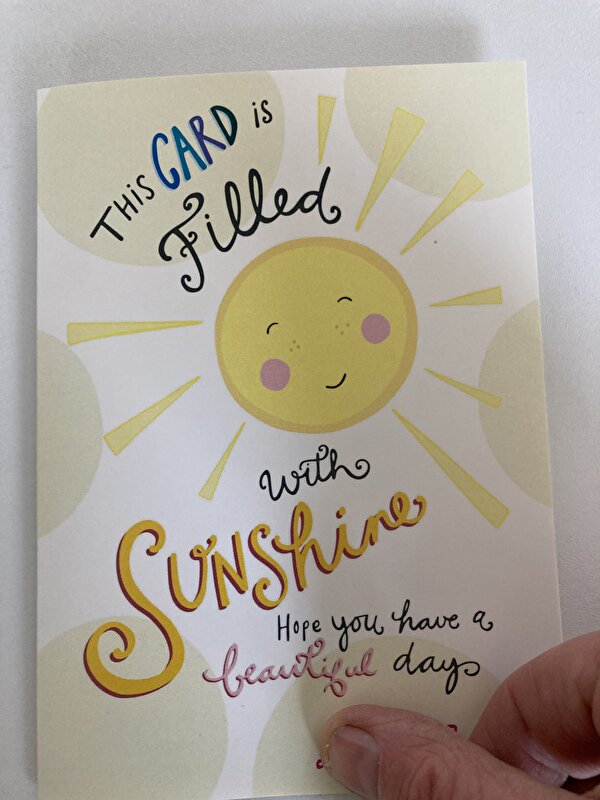 THiS CARD is
Filled
with
SUNShine
Hope you have a
beautiful day